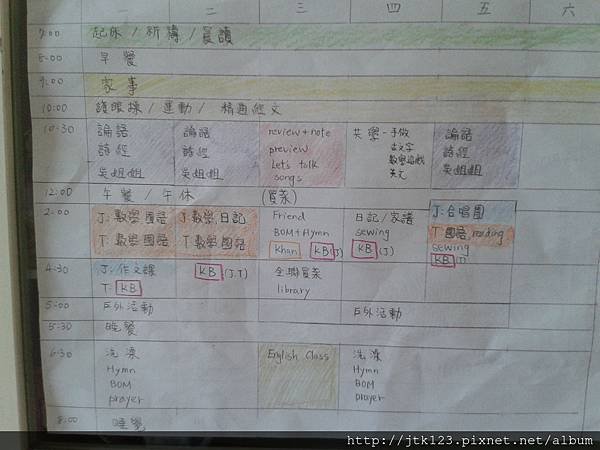 一 二 三 四 五 六
7:00 起床 / 祈禱 / 晨讀
8:00 早餐
9:00 家事
10:00 護眼操 / 運動 / 精通經文
10:30 論語 論語 review + note 共學 - 手做 論語
詩經 詩經 preview 古文字 詩經
吳姐姐 吳姐姐 Let's talk 數學遊戲 吳姐姐
songs 英文
12:00 午餐 / 午休 (買菜)
2:00 J: 數學 國語 J: 數學 日記 Friend 日記 / 家譜 J: 合唱團
T: 數學 國語 T: 數學 國語 BOM + Hymn sewing T: 國語 reading
Khan KB (J) KB (J) sewing
KB (J)
4:30 J: 作文課 KB (J.T) 全聯買菜
T: KB library
5:00 戶外活動 戶外活動
5:30 晚餐
6:30 洗澡 English Class 洗澡
Hymn Hymn
BOM BOM
prayer prayer
8:00 睡覺
http://jtk123.pixnet.net/album